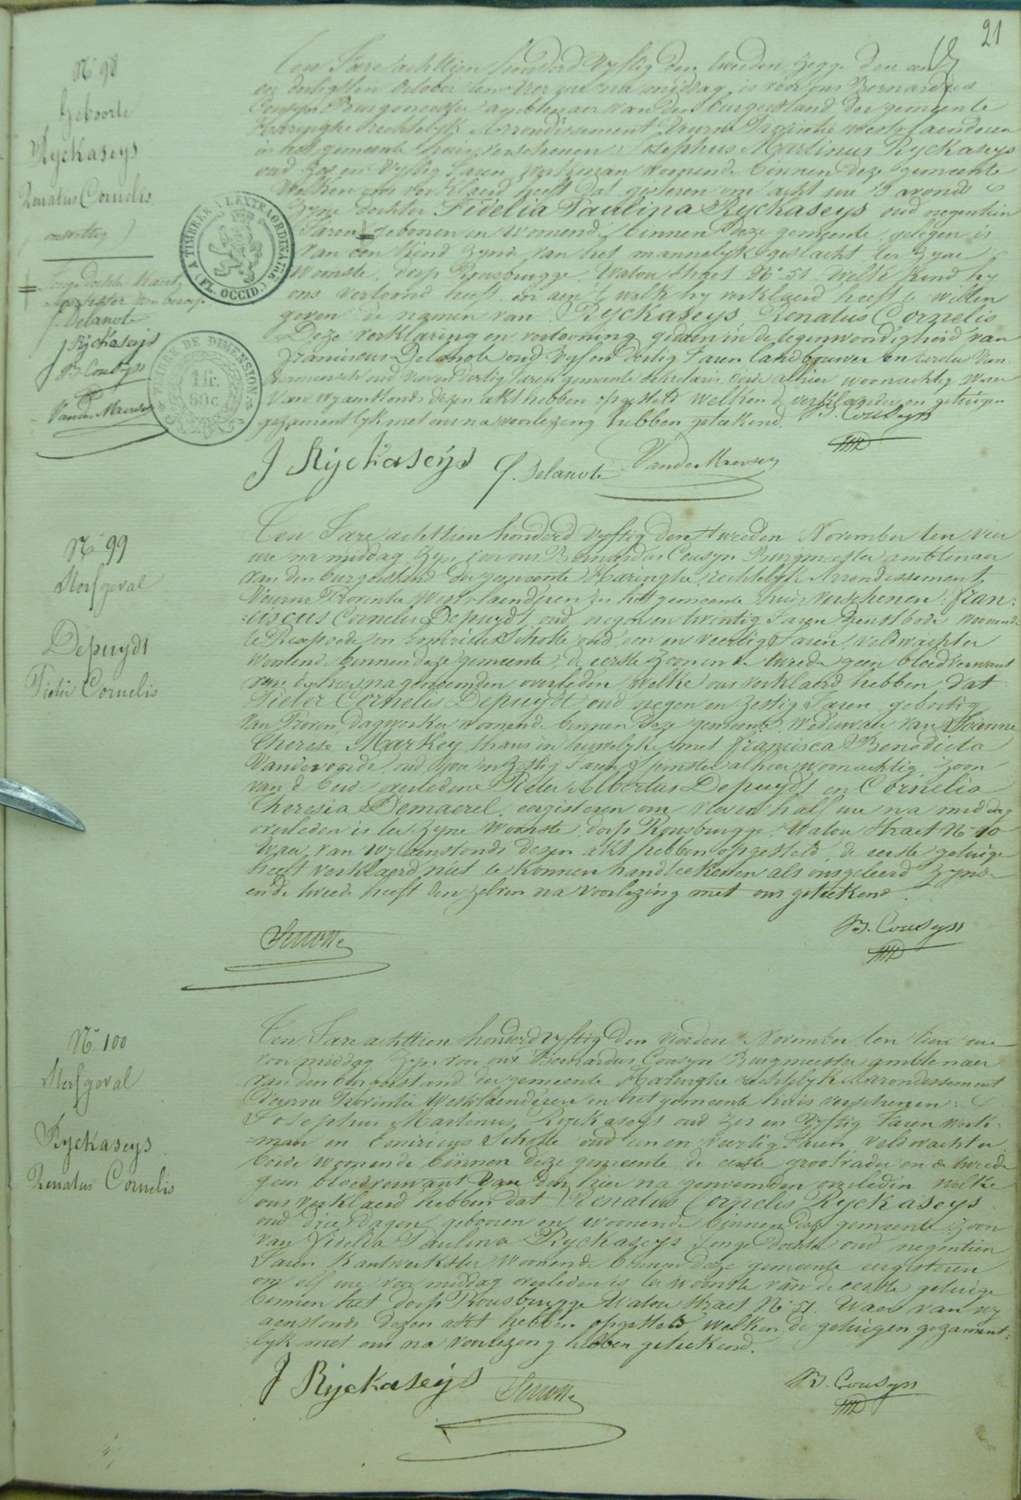 21
N° 98
Geboorte
Ryckaseys
Renatus Cornelis
onwettig
Ten Jare achttien honderd vyftig den tweeden zegge den een
en dertigsten October ten vier ure na middag is voor ons Bernardus
Cousyn Burgemeester amptenaer van den burgerstand der gemeente
Haeringhe rechtelyk Arrondissement Veurne Provincie Westvlaenderen
in het gemeente huis verschenen Josephus Martinus Ryckaseys
oud zes en vyftig Jaren Werkman woonende binnen deze gemeente
Welken ons verklaerd heeft dat gisteren om acht ure 's avonds
Zyne dochter Fidelia Paulina Ryckaseys oud negentien
Jaren geboren en woonende binnen deze gemeente gelegen is
van een kind zynde van het mannelyk geslacht ter zyne
Woonste dorp Rousbrugge Watou Straet N° 51 welk kind hy
ons vertoond heeft en aen 't welk hy verklaerd heeft te willen
geven de namen van Ryckaseys Renatus Cornelis
Deze verklaring en vertooning gedaen in de tegenwoordigheid van
Franciscus Delanote oud vyf en dertig Jaren landbouwer en
oud Jaren gemeente Secretaris beide alhier woonachtig Waer
van wy aenstonds dezen akt hebben opgesteld welken de verklaerder en getuigen
gezamentlyk met ons na voorlezing hebben geteekend.
Jonge dochter Kant
werkster van beroep
f. Delanote
J Ryckaseys
B. Cousyn
Vande
TIMBRE EXTRAORDINAIRE
(FL. OCCID.)
TIMBRE DE DIMENSION
1 fr.
B. Cousyn
J Ryckaseys f. Delanote Vande
N° 99
Sterfgeval
Depuydt
Pieter Cornelis
Ten Jare achttien honderd vyftig den tweeden November ten vier
ure na middag zyn voor ons Bernardus Cousyn Burgmeester amblenaer
van den burgerstand der gemeente Haringhe rechtelyk Arrondissement
Veurne Provintie West vlaenderen in het gemeente huis verschenen fran-
ciscus Cornelis Depuydt oud negen en twintig Jaren bode woonende
te Proosdy en Henricus Schotte oud een en veertig Jaren veldwachter
woonend binnen deze gemeente, de eerste zoon en de tweede geen bloedverwant
van den hier na genoemden overleden welke ons verklaerd hebben dat
Pieter Cornelis Depuydt oud negen en zestig Jaren geboortig
van Proven, dagwerker woonend binnen deze gemeente Weduwaer van Joanna
Therese Markey thans in huwelyke met francisca Benedicta
Vandevoorde, oud en zestig Jaren spinster alhier woonachtig zoon
van d' overledene Pieter Albertus Depuydt en Cornelia
Theresia Demaerel, eergisteren om elf en half ure na middag
overleden is ter zyne woonste, dorp Rousbrugge Watou Straet N° 40
Waer van wy aenstonds dezen akt hebben opgesteld de eerste getuige
heeft verklaerd niet te konnen handteekenen als ongeleerd zynde
en de tweede heeft den zelven na voorlezing met ons geteekend.
Schotte
B. Cousyn
N° 100
Sterfgeval
Ryckaseys
Renatus Cornelis
Ten Jare achttien honderd vyftig den vierden November ten tien ure
voor middag zyn voor ons Bernardus Cousyn Burgmeester amblenaer
van den burgerstand der gemeente Haringhe rechtelyk Arrondissement
Veurne Provintie Westvlaenderen in het gemeente huis verschenen
Josephus Martinus Ryckaseys oud zes en vyftig Jaren werk-
man en Henricus Schotte oud een en veertig Jaren Veldwachter
beide woonende binnen deze gemeente, de eerste grootvader en de tweede
geen bloedverwant van den hier na genoemden overleden welke
ons verklaerd hebben dat Renatus Cornelis Ryckaseys
oud drie dagen geboren en woonende binnen deze gemeente Zoon
van Fidelia Paulina Ryckaseys jonge dochter oud negentien
Jaren Kantwerkster woonende binnen deze gemeente eergisteren
om elf ure voor middag overleden is ter woonste van de eerste getuige
binnen het dorp Rousbrugge Watou Straet N° 51. Waer van wy
aenstonds dezen akt hebben opgesteld welken de getuigen gezament-
lyk met ons na voorlezing hebben geteekend.
J Ryckaseys Schotte
B. Cousyn